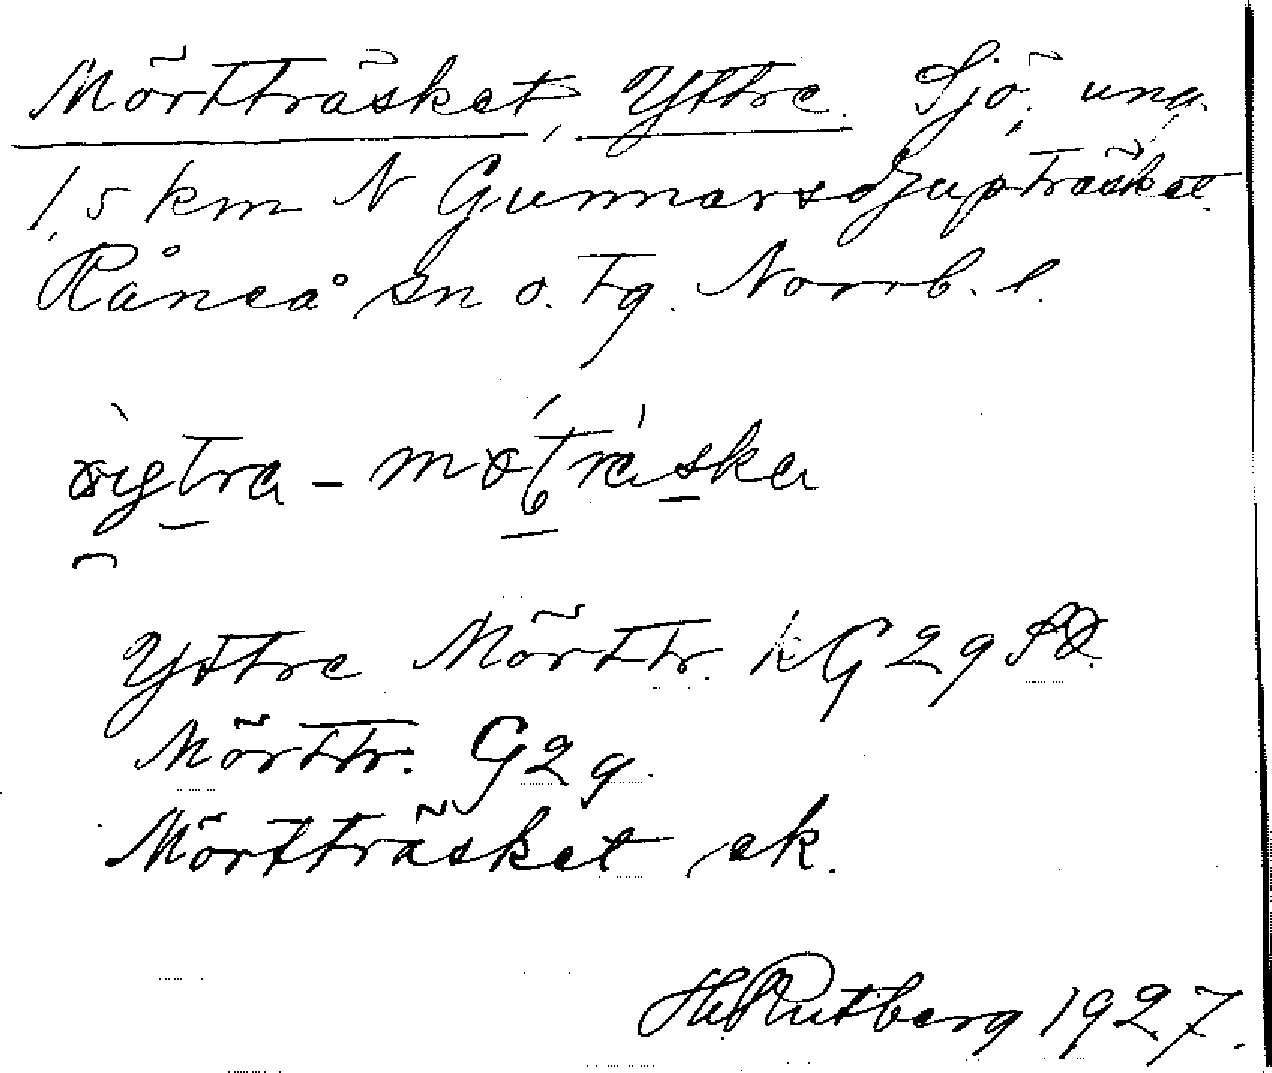 Mörtträsket, Yttre. Sjö, ung.
1,5 km N Gunnarsdjupträsket
Råneå sn o. tg. Norrb. l.
Yttre Mörttr. kG 29
Mörttr. G 29.
Mörtträsket ek.
H Rutberg 1927.